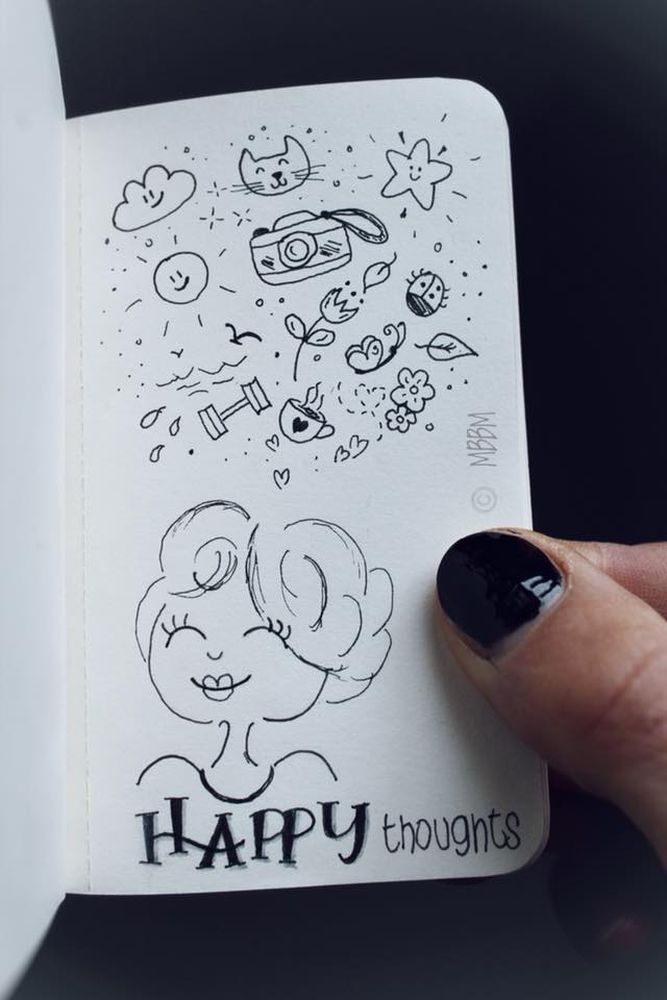 © MBBM
HAPPY thoughts